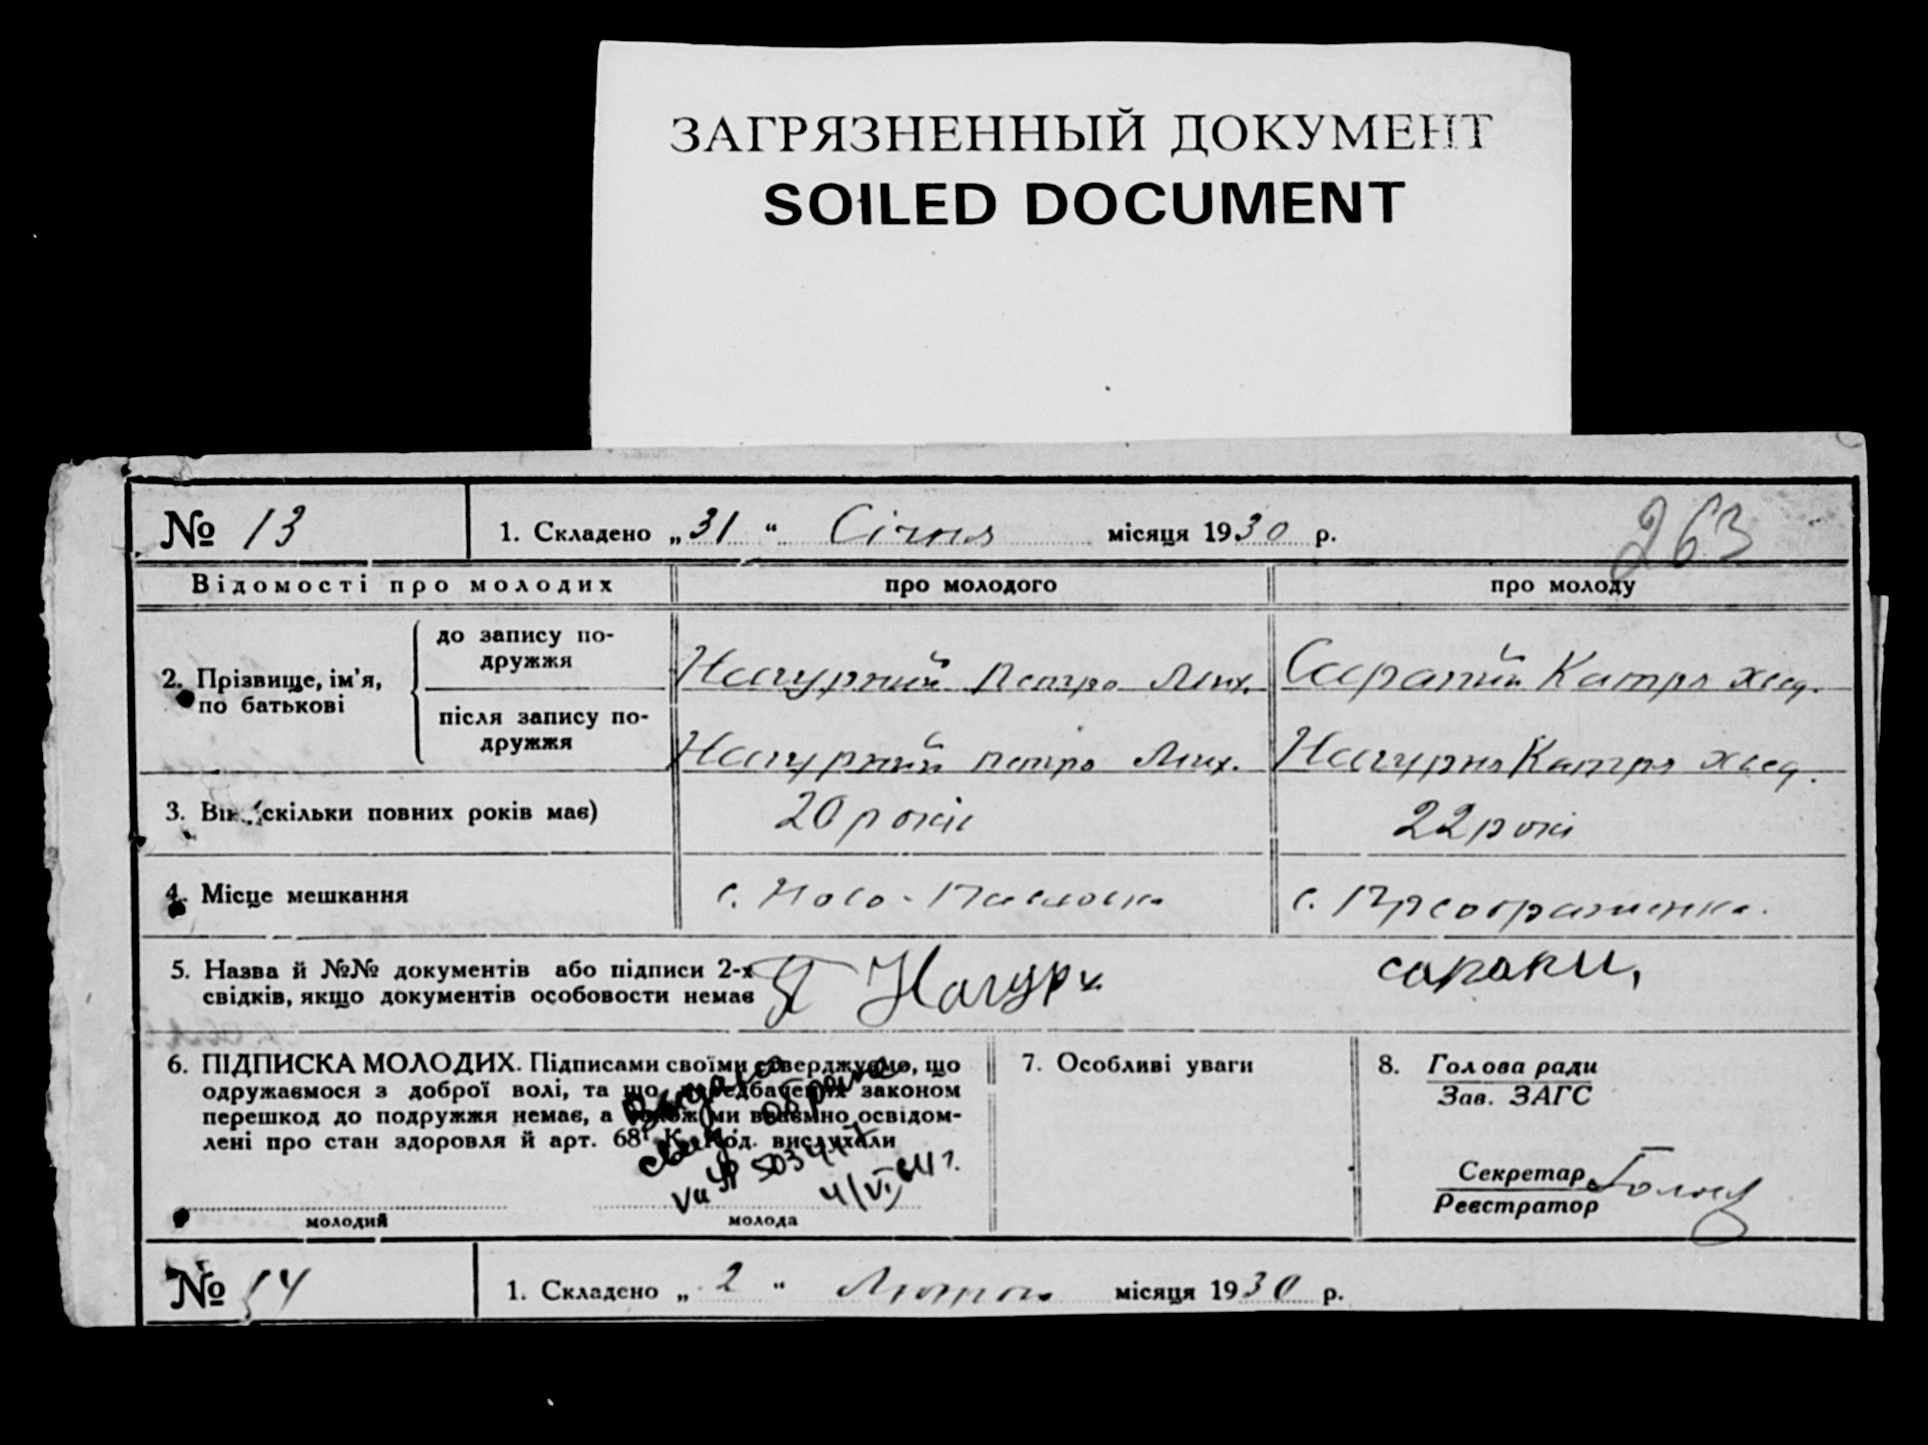 ЗАГРЯЗНЕННЫЙ ДОКУМЕНТ
SOILED DOCUMENT
263
№ 13
1. Складено „31“ Січня місяця 1930 р.
Відомості про молодих
про молодого
про молоду
2. Прізвище, ім'я, по батькові
до запису подружжя
Нагурний Петро Мих.
Катря Хвед.
після запису подружжя
Нагурний Петро Мих.
Нагурна Катря Хвед.
3. Вік (скільки повних років має)
20 років
22 рокі
4. Місце мешкання
с. Ново-Павловка
с. Преображенка.
5. Назва й №№ документів або підписи 2-х
свідків, якщо документів особовости немає
6. ПІДПИСКА МОЛОДИХ. Підписами своїми стверджуємо, що
одружаємося з доброї волі, та що передбачених законом
перешкод до подружжя немає, а також ми взаємно освідом-
лені про стан здоровля й арт. 68¹ К. Код. вислухали
молодий
молода
7. Особливі уваги
8. Голова ради
Зав. ЗАГС
Секретар
Реєстратор
№ 14
1. Складено „2“ Лютого місяця 1930 р.